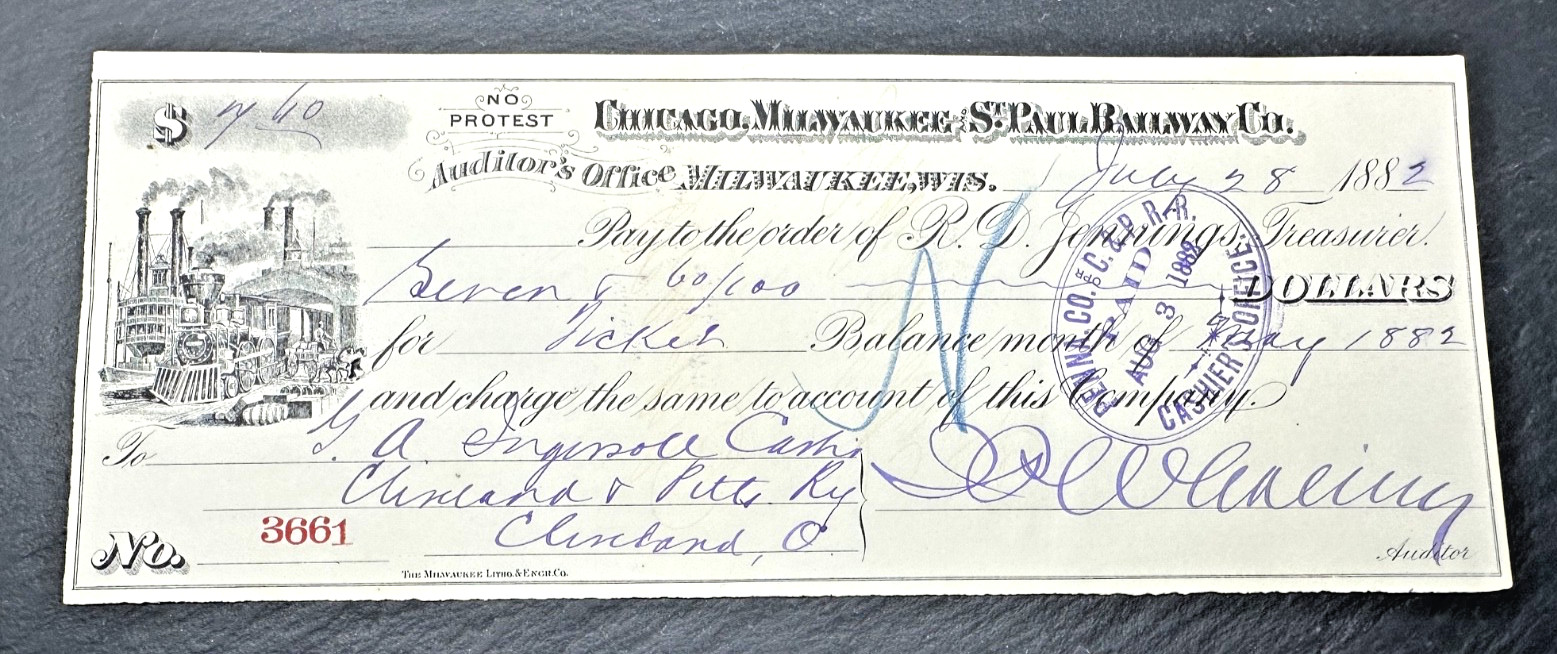 $ 7 60
NO PROTEST
CHICAGO, MILWAUKEE AND ST. PAUL RAILWAY CO.
Auditor's Office, MILWAUKEE, WIS. July 28 1882
Pay to the order of R. D. Jennings, Treasurer.
Seven & 60/100 DOLLARS
for Ticket Balance month of May 1882
and charge the same to account of this Company.
To G. A. Ingersoll Cash.
Cleveland & Pitts. Ry
Cleveland, O.
No. 3661
Auditor
THE MILWAUKEE LITHO. & ENGR. CO.
PENN. CO. OPR C. & P. R. R.
PAID
AUG 3 1882
CASHIER'S OFFICE
N